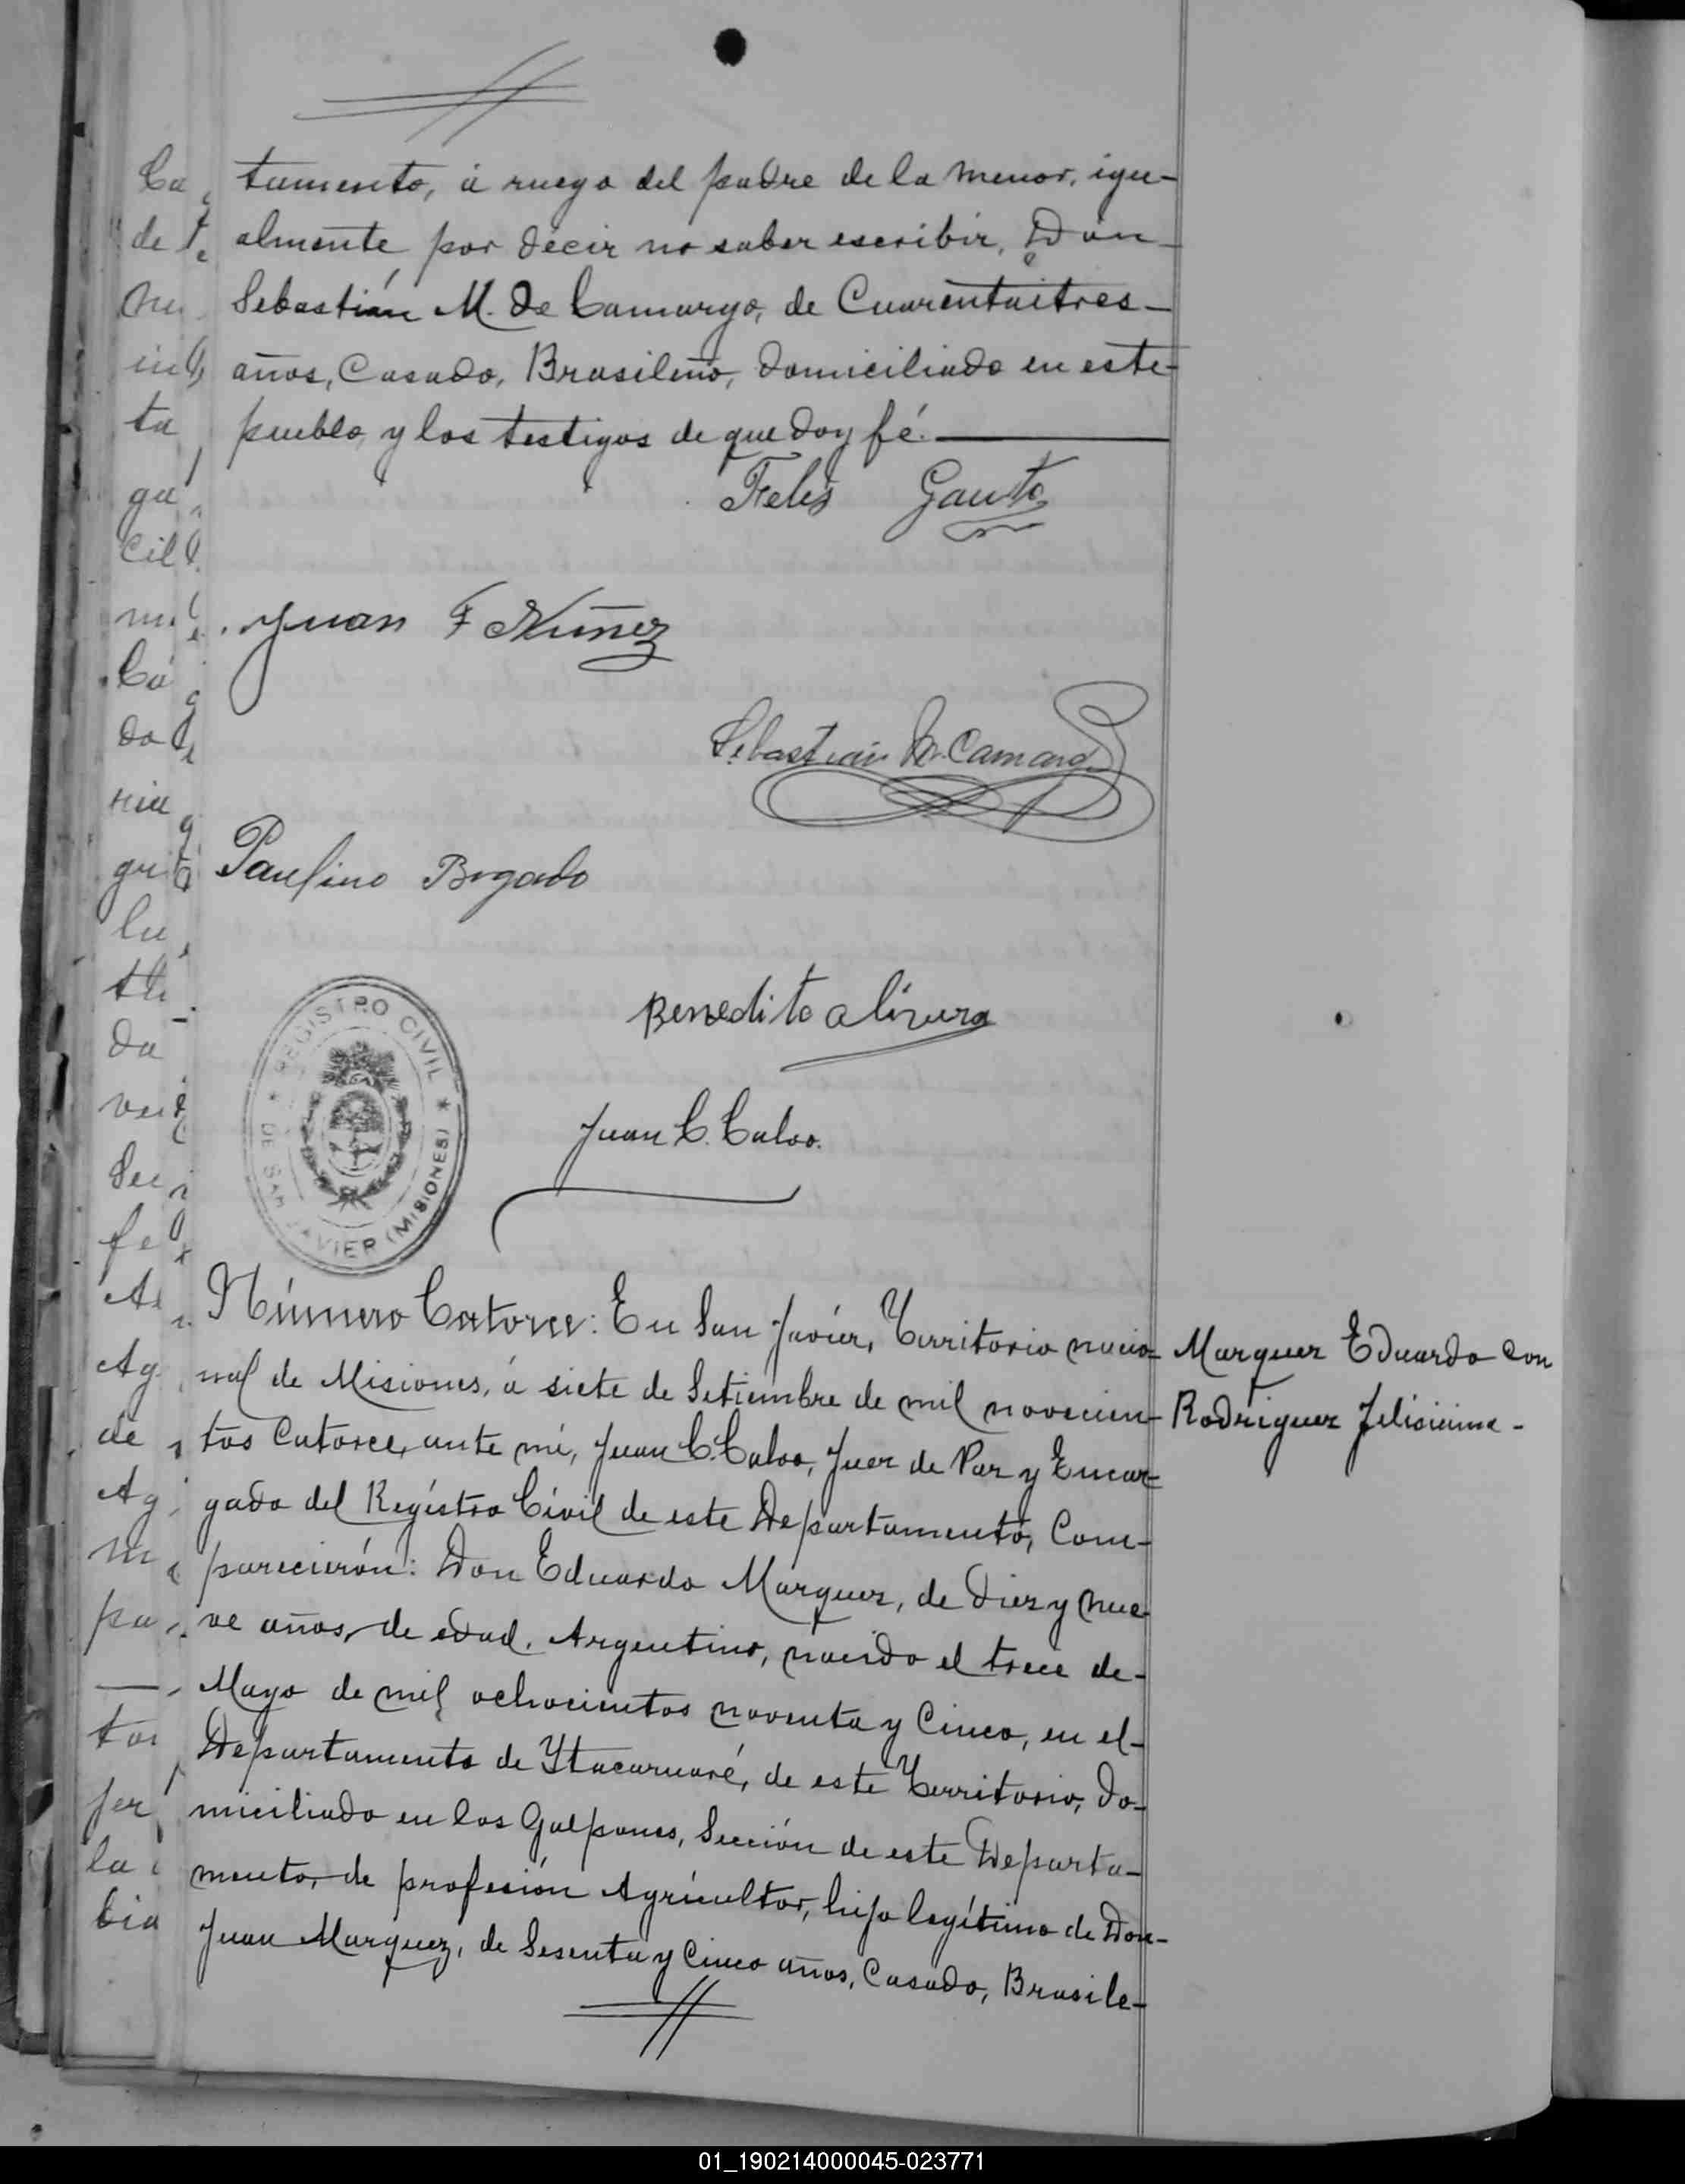 tamento, á ruego del padre de la menor, igu-
almente por decir no saber escribir, Don
Sebastián M. de Camargo, de Cuarentaitres-
años, Casado, Brasileño, domiciliado en este-
pueblo, y los testigos de que doy fé.
Felis Gauto
Juan F Nuñez
Sebastian M. Camargo
Paulino Bogado
Benedito alivera
REGISTRO CIVIL
DE SAN JAVIER (MISIONES)
Juan C. Calvo.
Número Catorce: En San Javier, Territorio nacio-
nal de Misiones, á siete de Setiembre de mil novecien-
tos Catorce, ante mí, Juan C. Calvo, Juez de Paz y Encar-
gado del Registro Civil de este Departamento, Com-
parecierón: Don Eduardo Marquez, de Diez y nue-
ve años, de edad, Argentino, nacido el trece de-
Mayo de mil ochocientos noventa y Cinco, en el-
Departamento de Ytacaruaré, de este Territorio, do-
miciliado en los Galpones, Sección de este Departa-
mento, de profesión Agricultor, hijo legítimo de Don-
Juan Marquez, de Sesenta y Cinco años, Casado, Brasile-
Marquez Eduardo con
Rodriguez Felisiima -
01_190214000045-023771